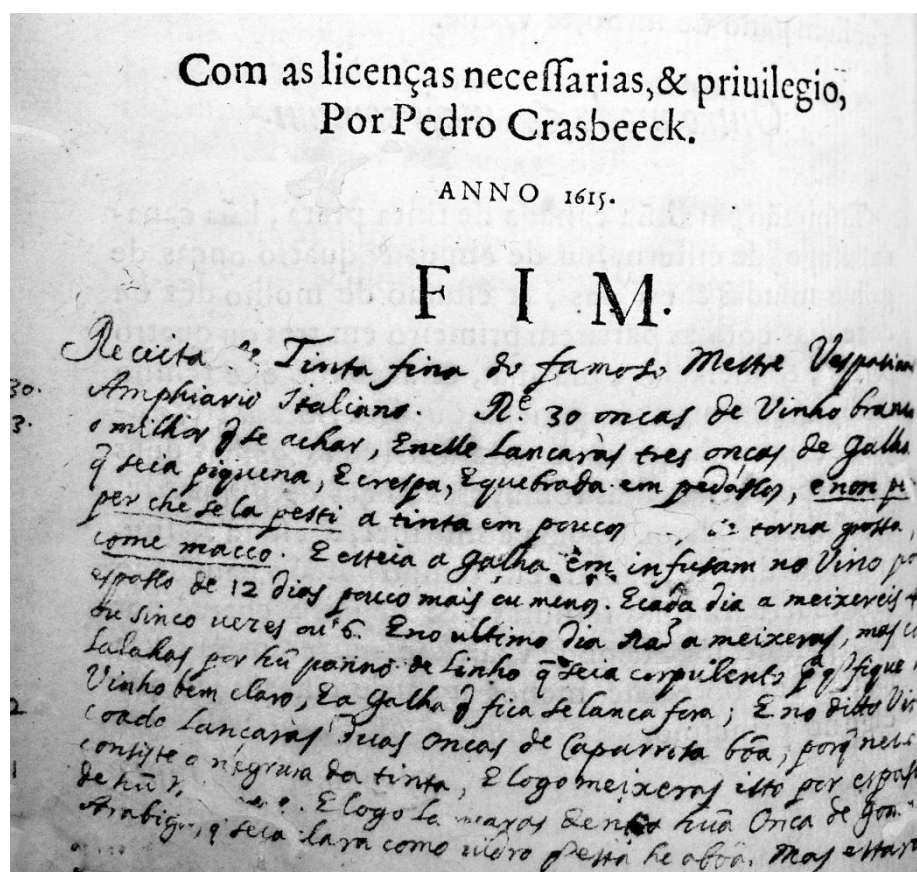 Com as licenças neceſſarias, & priuilegio,
Por Pedro Crasbeeck.
ANNO 1615.
FIM.
Receita Tinta fina do famoso Mestre
30. Amphiario Italiano. Re. 30 oncas de Vinho
3. o milhor q̃ se achar, E nelle Lancaràs tres oncas de
q̃ seia piquena, E crespa, E quebrada em pedaſſos, e non
per che se la pesti a tinta em poucos torna grossa,
come macco. E esteia a galha em infusam no Vino
espaſſo de 12 dias pouco mais ou menos. E cada dia a meixereis
ou sinco uezes ou 6. E no ultimo dia naõ a meixeras, mas
por hũ panno de Linho q̃ seia corpulento fique
Vinho bem claro, E a Galha q̃ fica se lanca fora; E no ditto
2 coado Lancaràs duas oncas de Caparrosa bõa, porq̃
consiste o negrura da tinta, E logo meixeras isto por
1 de hũ E logo hũa Onca de
Arabiga, q̃ seia clara como uidro pesta he aboã. Mas